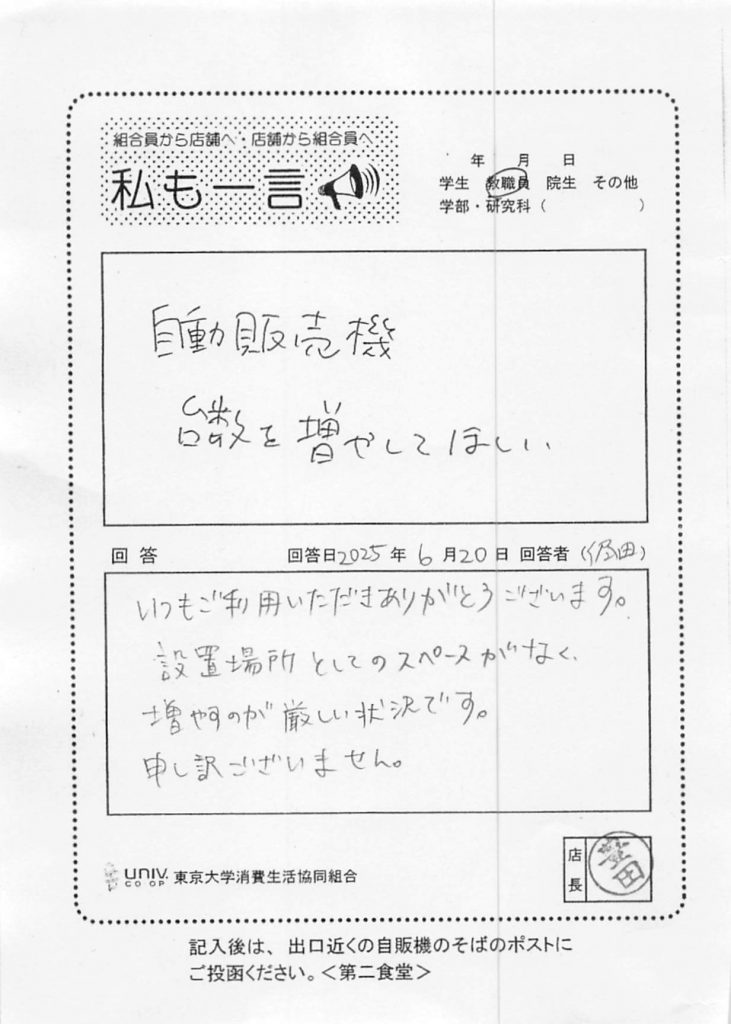 組合員から店舗へ・店舗から組合員へ
私も一言
年 月 日
学生 教職員 院生 その他
学部・研究科( )
自動販売機
台数を増やしてほしい
回答 回答日2025年6月20日 回答者( 田)
いつもご利用いただきありがとうございます。
設置場所としてのスペースがなく、
増やすのが厳しい状況です。
申し訳ございません。
UNIV.
CO-OP
東京大学消費生活協同組合
店長
田
記入後は、出口近くの自販機のそばのポストに
ご投函ください。<第二食堂>